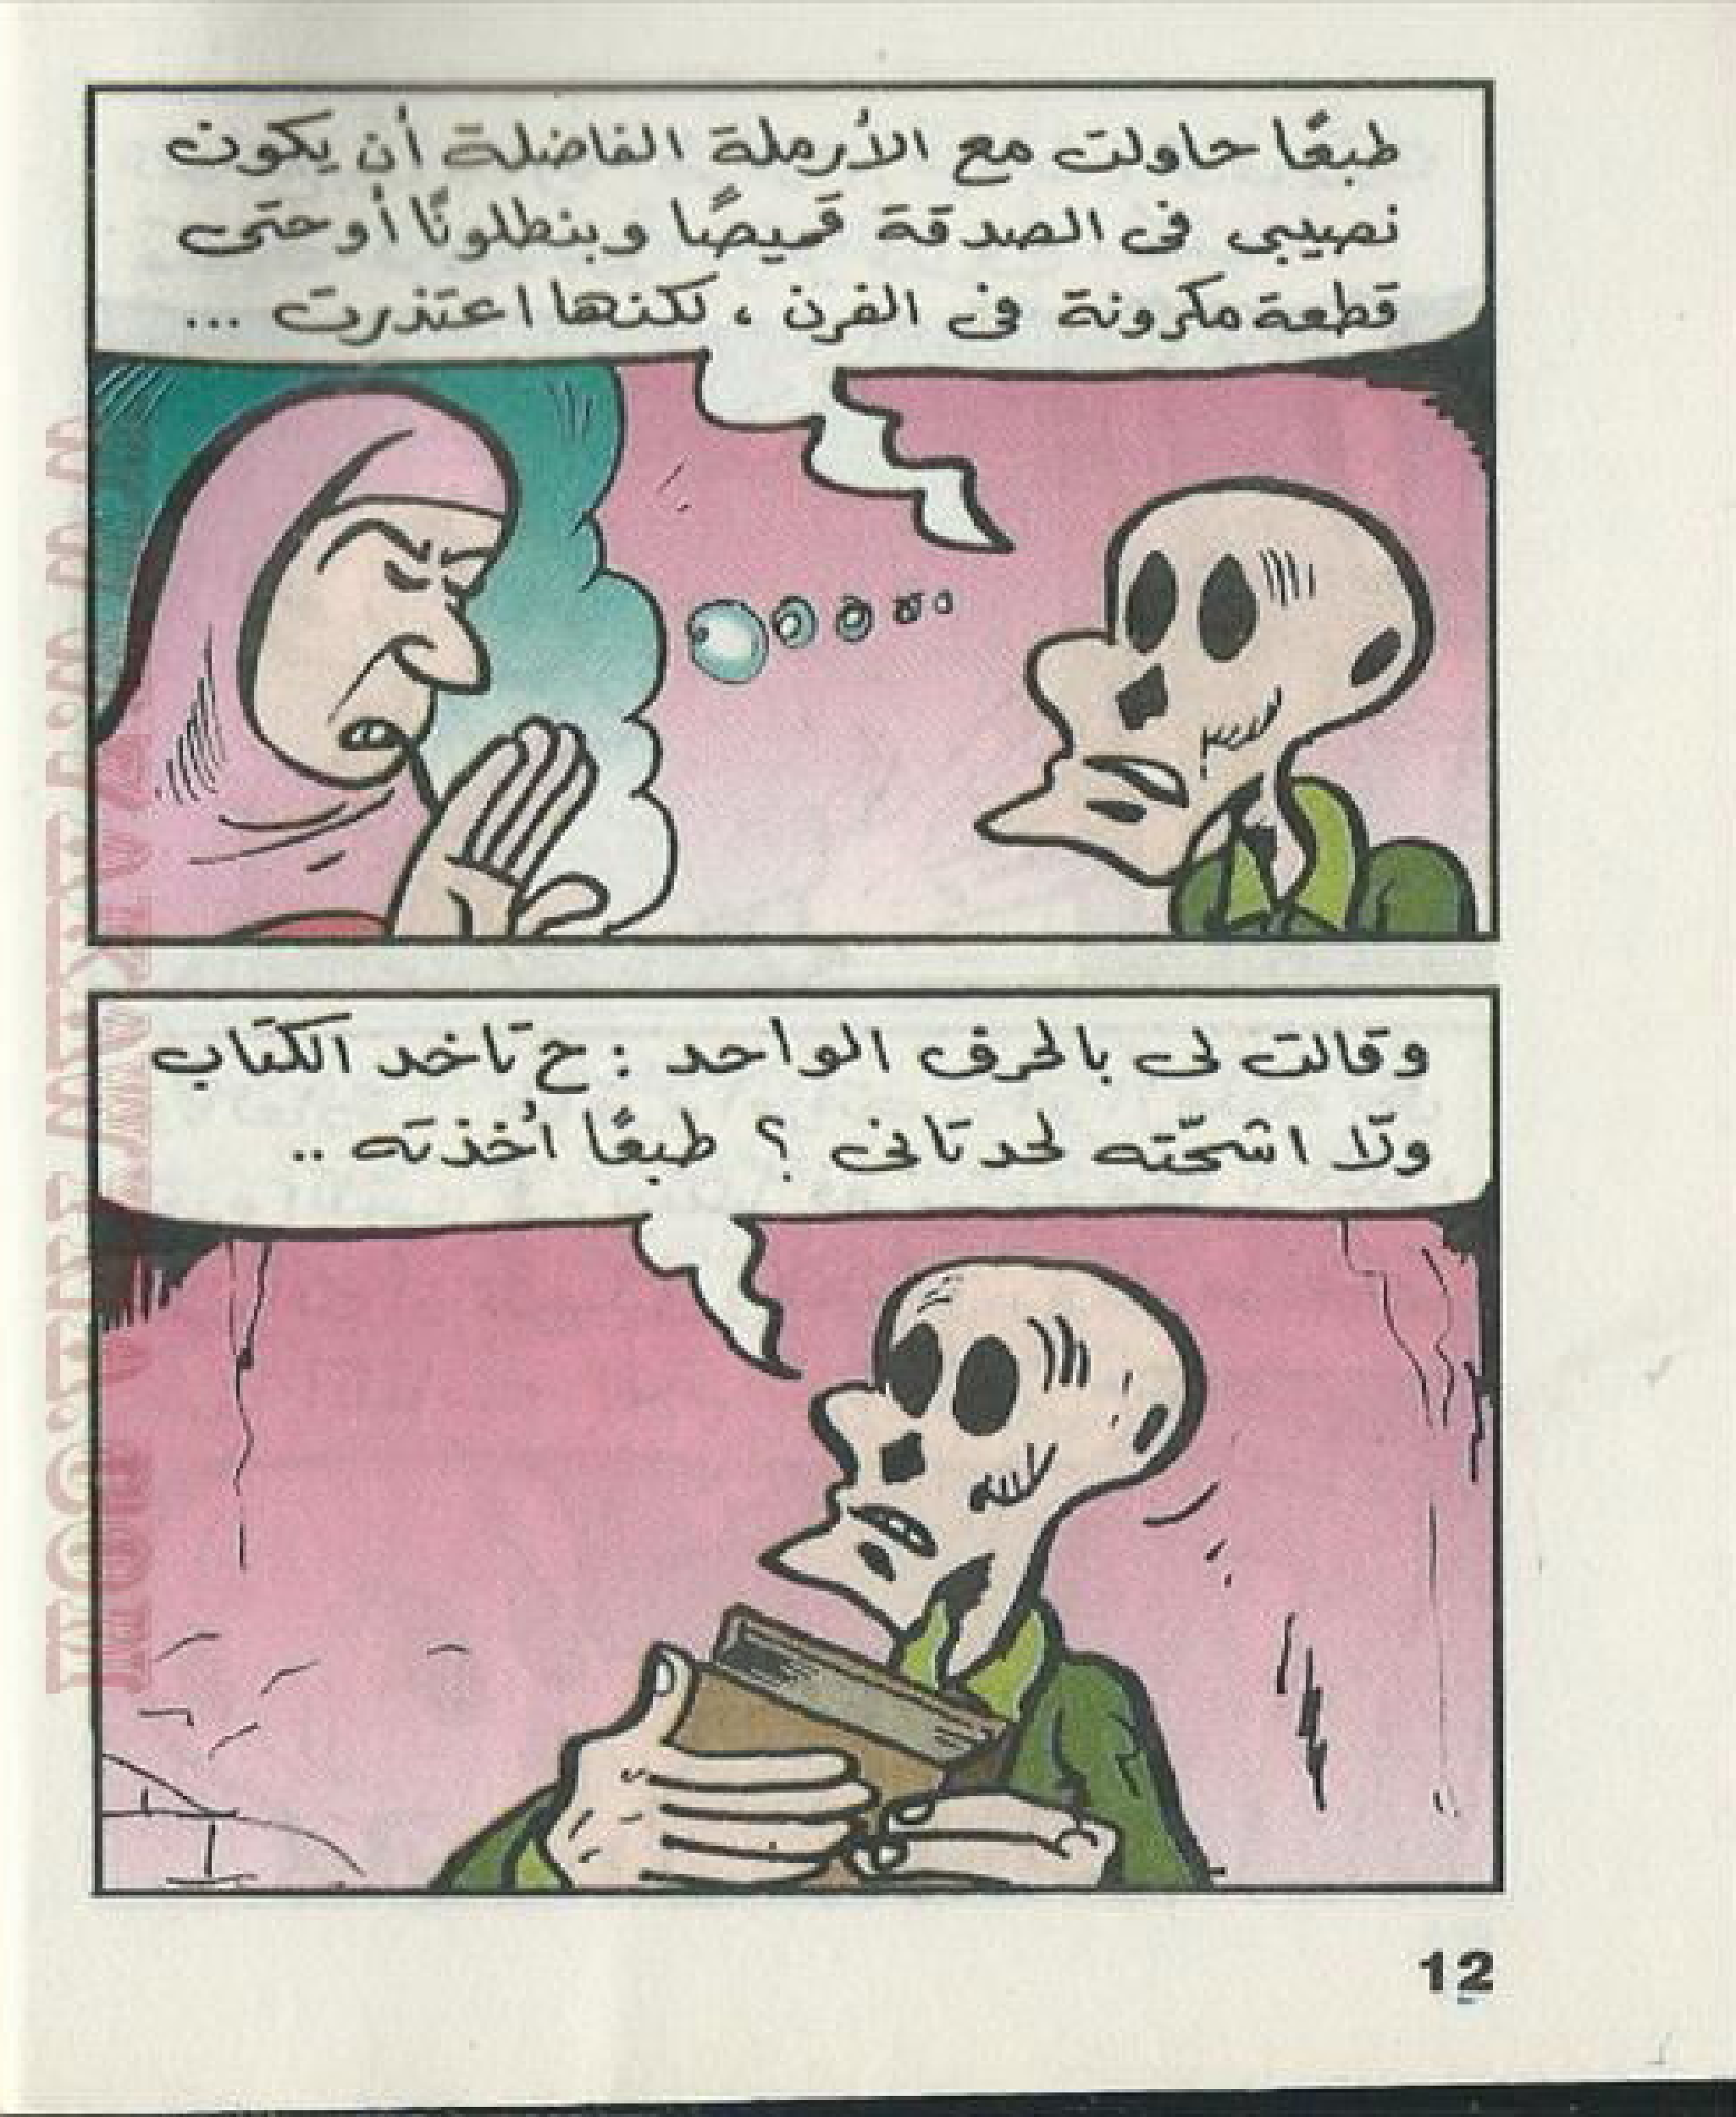 طبعًا حاولت مع الأرملة الفاضلة أن يكون
نصيبى فى الصدقة قميصًا وبنطلونًا أو حتى
قطعة مكرونة فى الفرن ، لكنها اعتذرت ...
وقالت لى بالحرف الواحد : ح تاخد الكتاب
ولّا اشحّته لحد تانى ؟ طبعًا أخذته ..
12